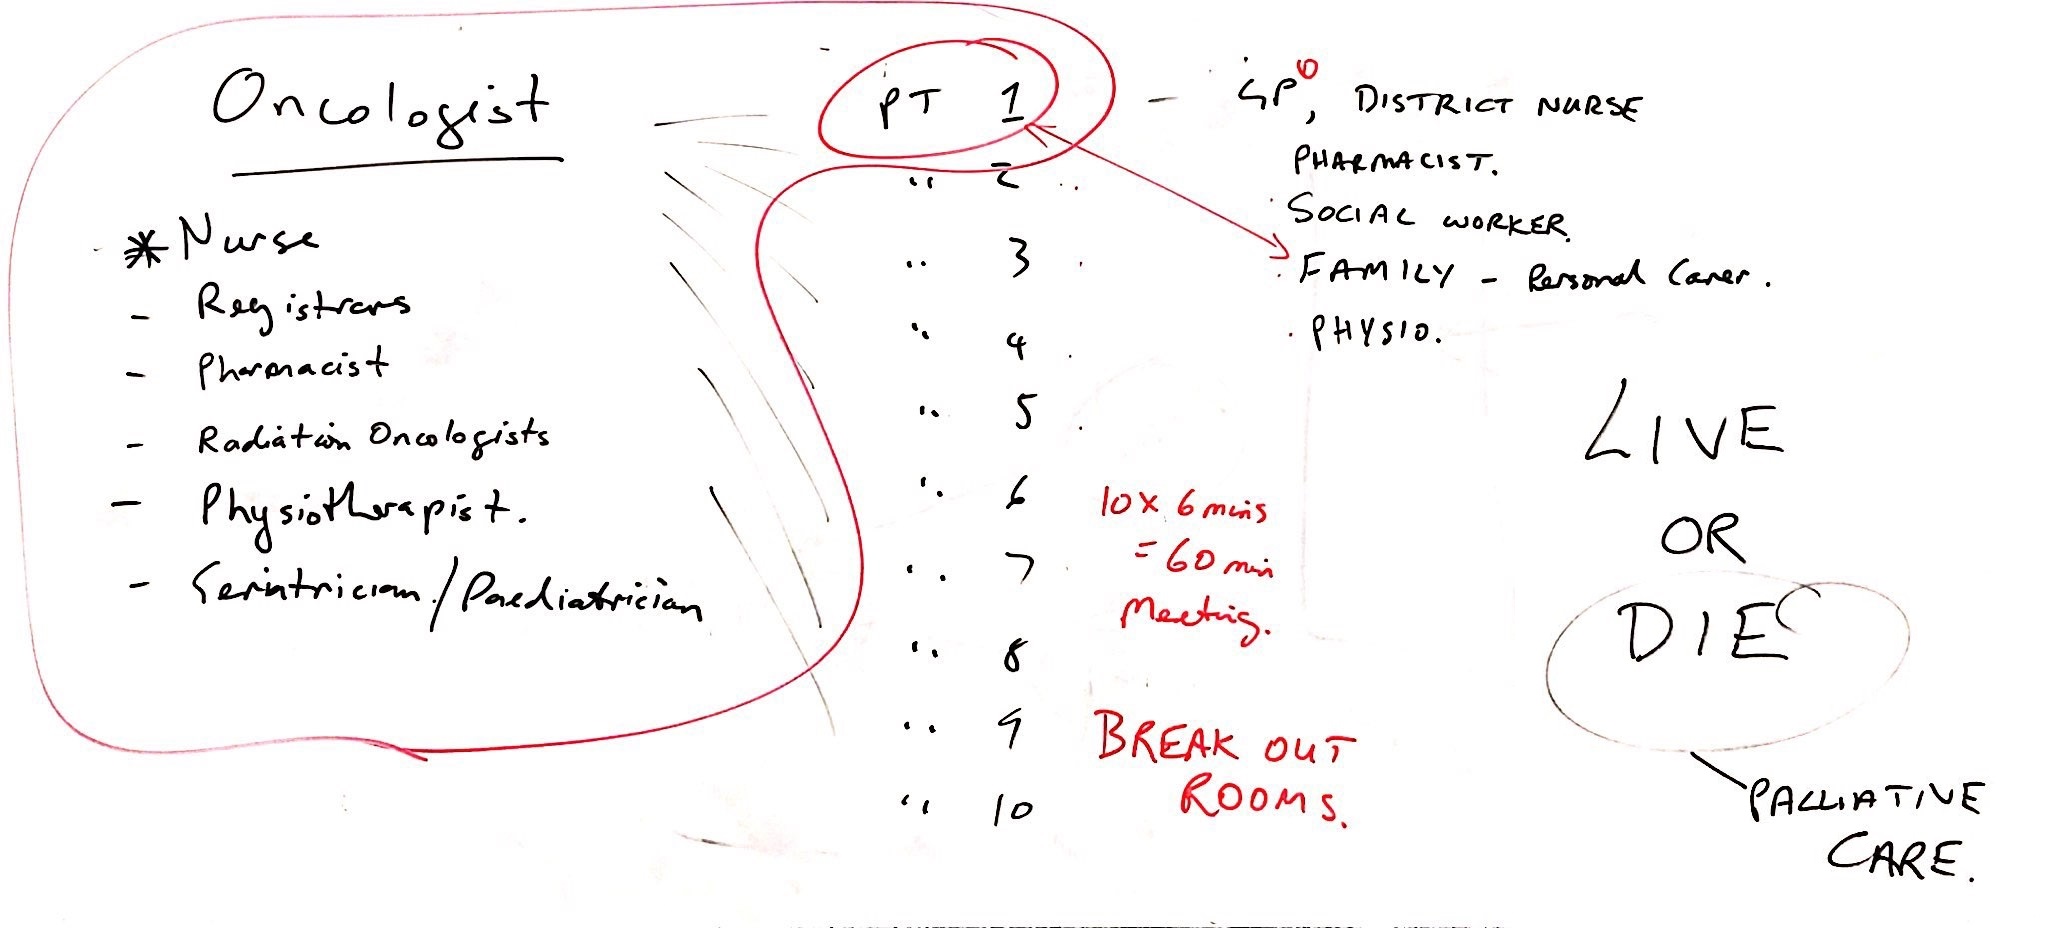 Oncologist
* Nurse
- Registrars
- Pharmacist
- Radiation Oncologists
- Physiotherapist.
- Geriatrician/Paediatrician
PT 1
" 2
" 3
" 4
" 5
" 6
" 7
" 8
" 9
" 10
- GP, DISTRICT NURSE
PHARMACIST.
SOCIAL WORKER.
FAMILY - Personal Carer.
PHYSIO.
10 x 6 mins
= 60 min
Meeting.
BREAK OUT
ROOMS.
LIVE
OR
DIE
PALLIATIVE
CARE.